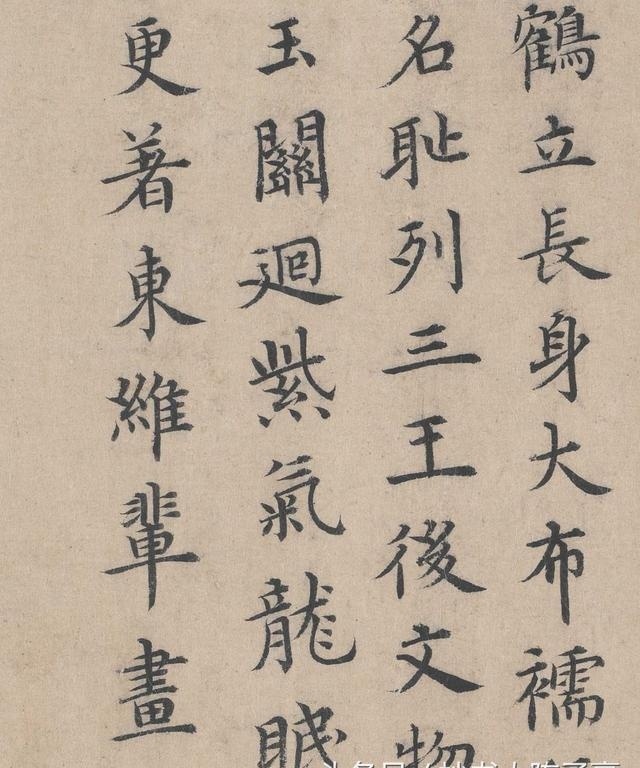 鶴立長身大布襦
名耻列三王後文物
玉關迴紫氣龍
更著東維輩畫